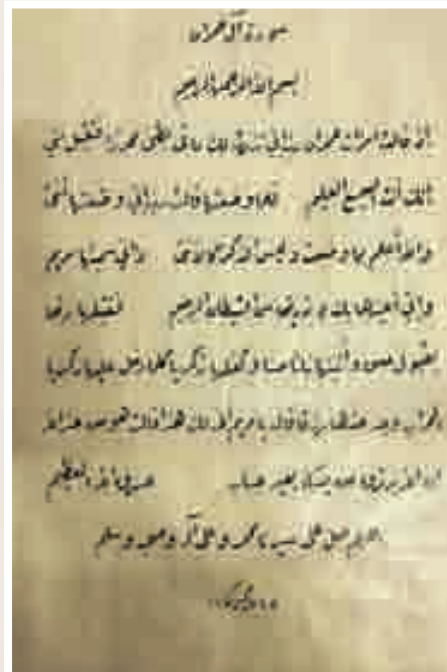 سورة آل عمران
بسم الله الرحمن الرحيم
إذ قالت امرأت عمران رب إني نذرت لك ما في بطني محررا فتقبل مني
إنك أنت السميع العليم فلما وضعتها قالت رب إني وضعتها أنثى
والله أعلم بما وضعت وليس الذكر كالأنثى وإني سميتها مريم
وإني أعيذها بك وذريتها من الشيطان الرجيم فتقبلها ربها
بقبول حسن وأنبتها نباتا حسنا وكفلها زكريا كلما دخل عليها زكريا
المحراب وجد عندها رزقا قال يا مريم أنى لك هذا قالت هو من عند الله
إن الله يرزق من يشاء بغير حساب صدق الله العظيم
اللهم صل على سيدنا محمد وعلى آله وصحبه وسلم